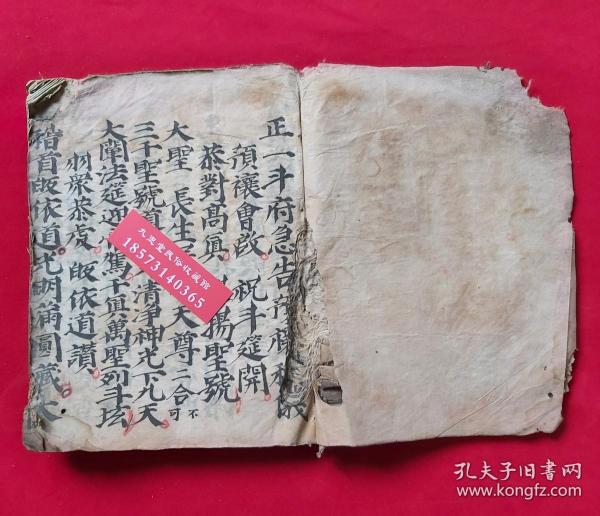 正一斗府急告
預禳會啟 祝斗筵開
恭對高真 揚聖號
大聖 長生 天尊 二合 不可
三千聖號 清淨神光下九天
大闡法筵迎 駕千真萬聖列斗坛
羽眾恭虔 皈依道讚
稽首皈依道 光明滿圓藏大
九思堂民俗收藏馆
18573140365
孔夫子旧书网
www.kongfz.com